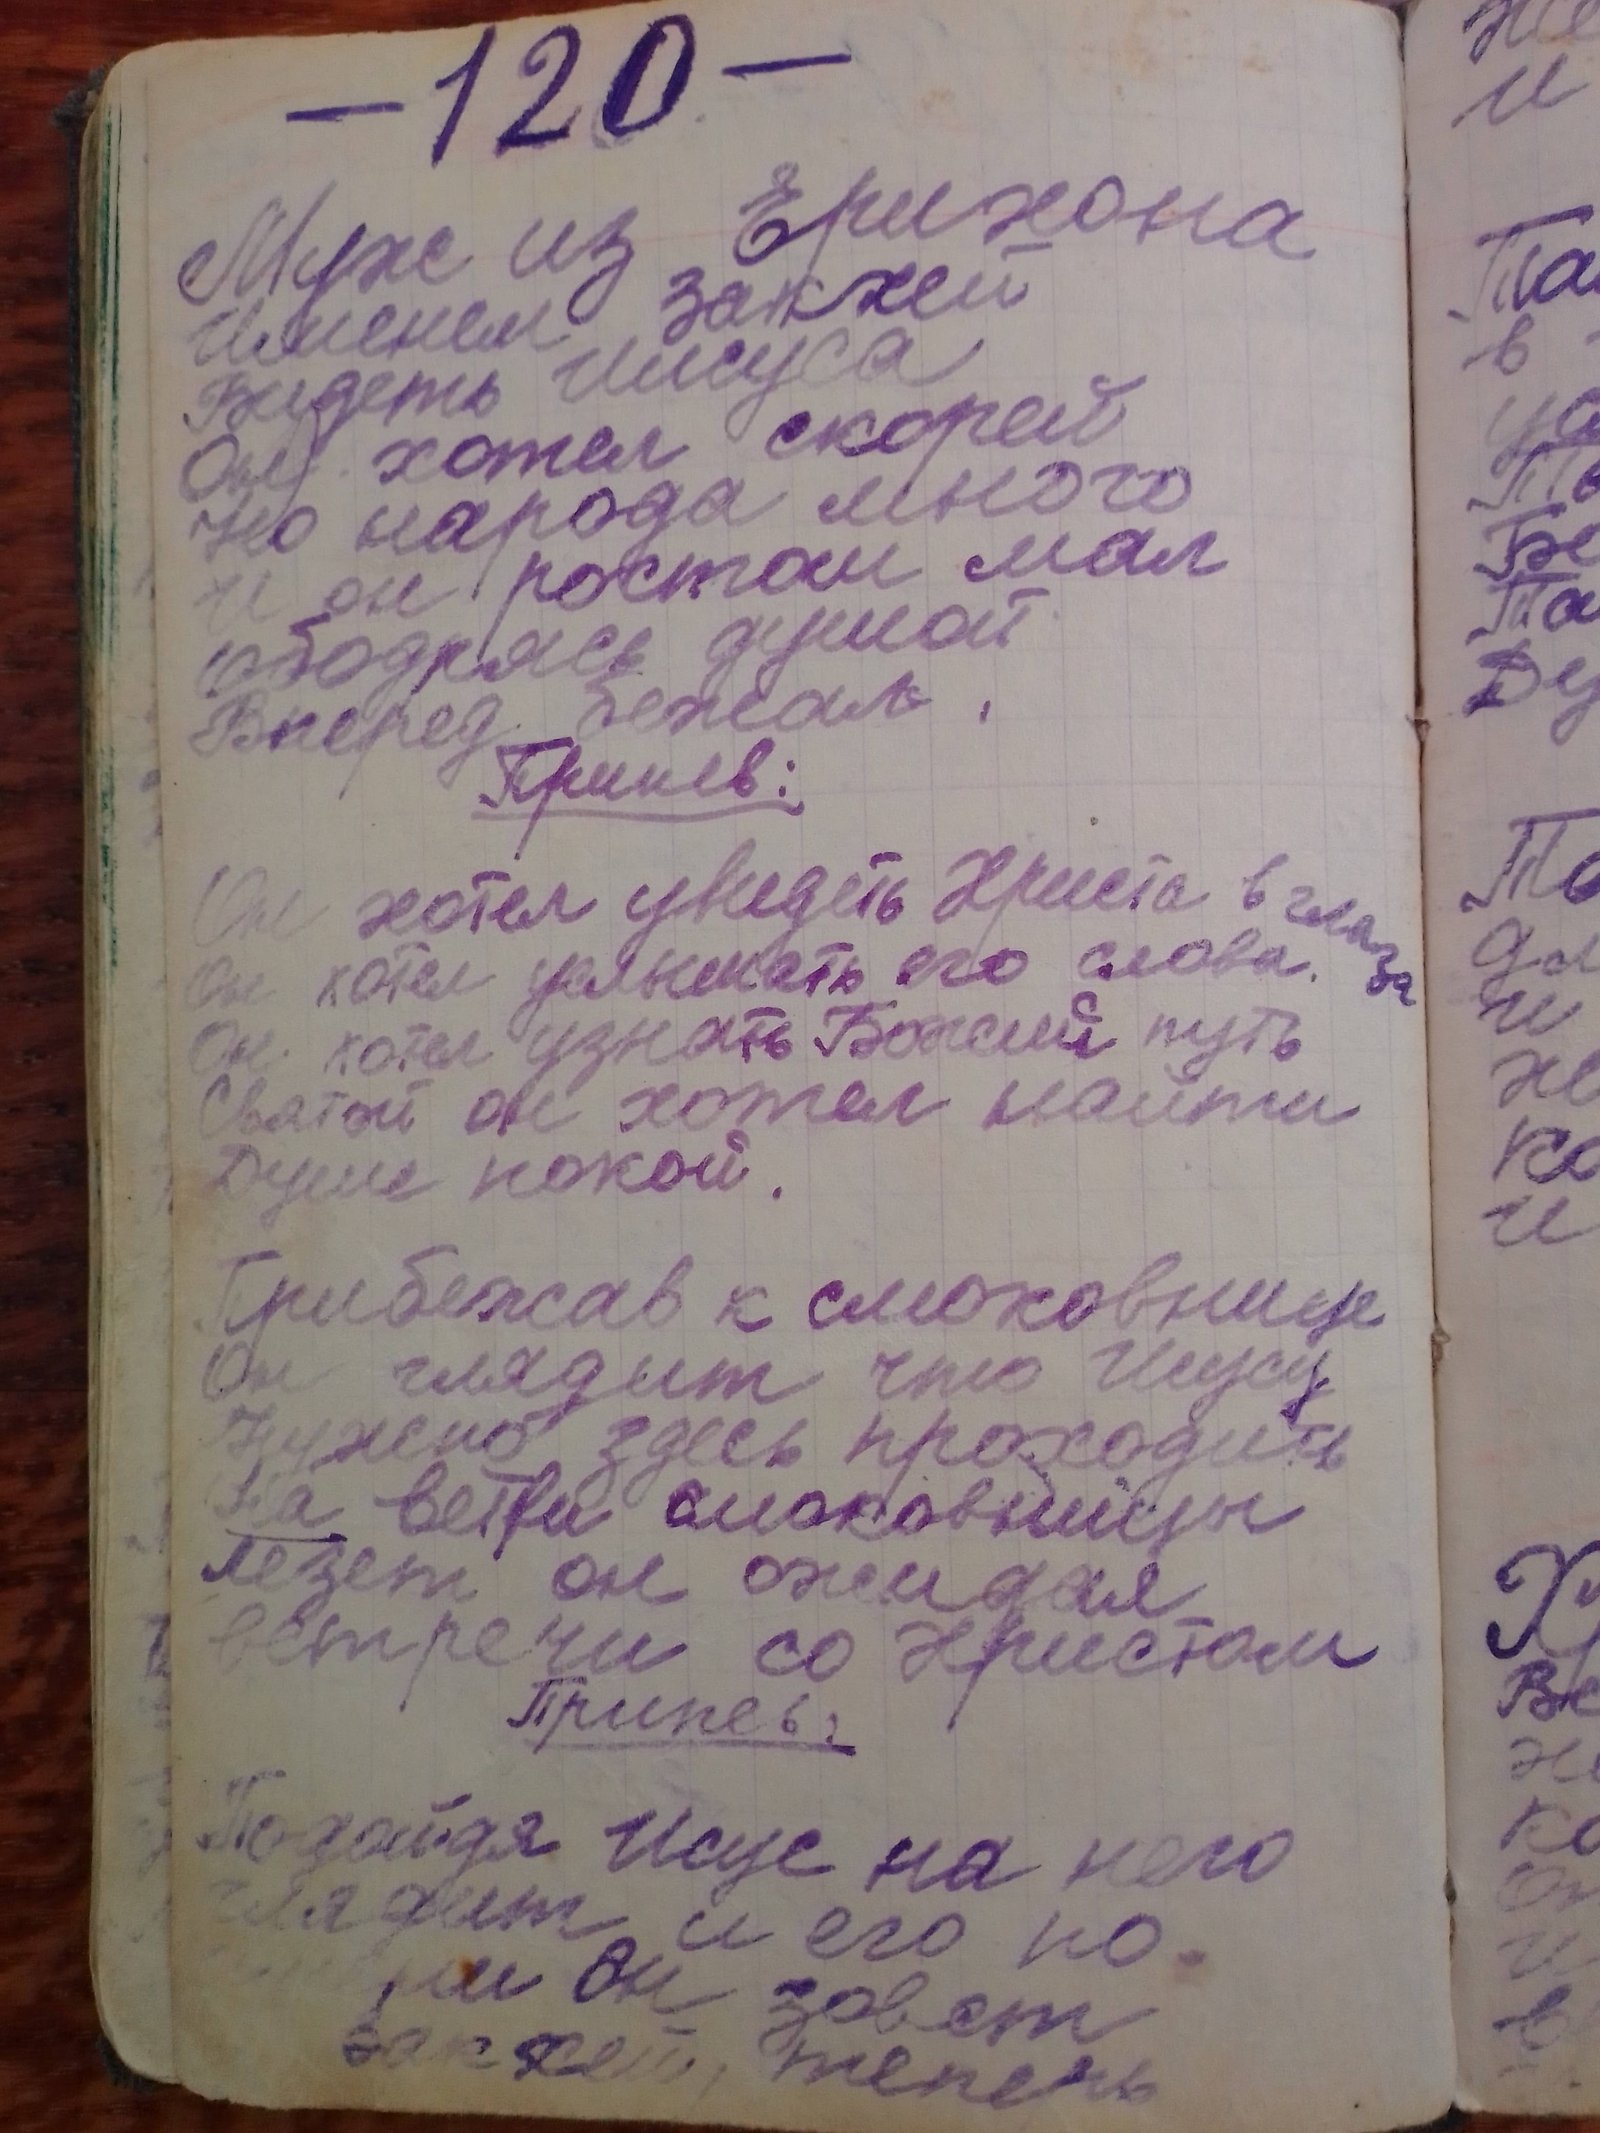 —120—
Муж из Ерихона
Именем Закхей
Видеть Иисуса
Он хотел скорей
Но народа много
И он ростом мал
ободрясь душой
Вперед бежал.
Припев:
Он хотел увидеть Христа в глаза
Он хотел услышать его слова.
Он хотел узнать Божий путь
Святой он хотел найти
Душе покой.
Прибежав к смоковнице
Он глядит что Исусу
Нужно здесь проходить
На ветви смоковницы
лезет он ожидая
встречи со Христом
Припев:
Подойдя Исус на него
глядит и его по
он зовет
Закхей, теперь
Па
в
Па
Ду
По
и
ко
и
Хр
Ве
ко